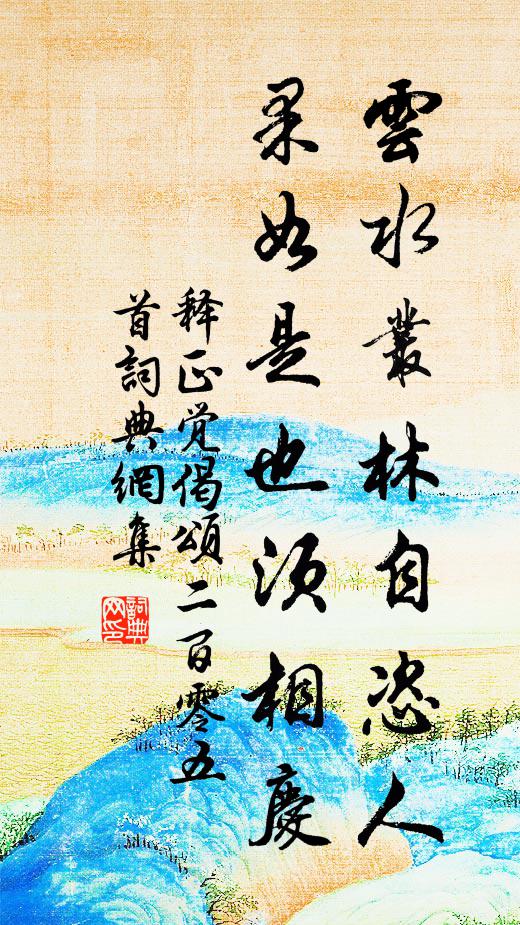 雲水叢林自恣人
果如是也須相慶
释正觉偈頌二百零五
首詞典網集
詞典网印